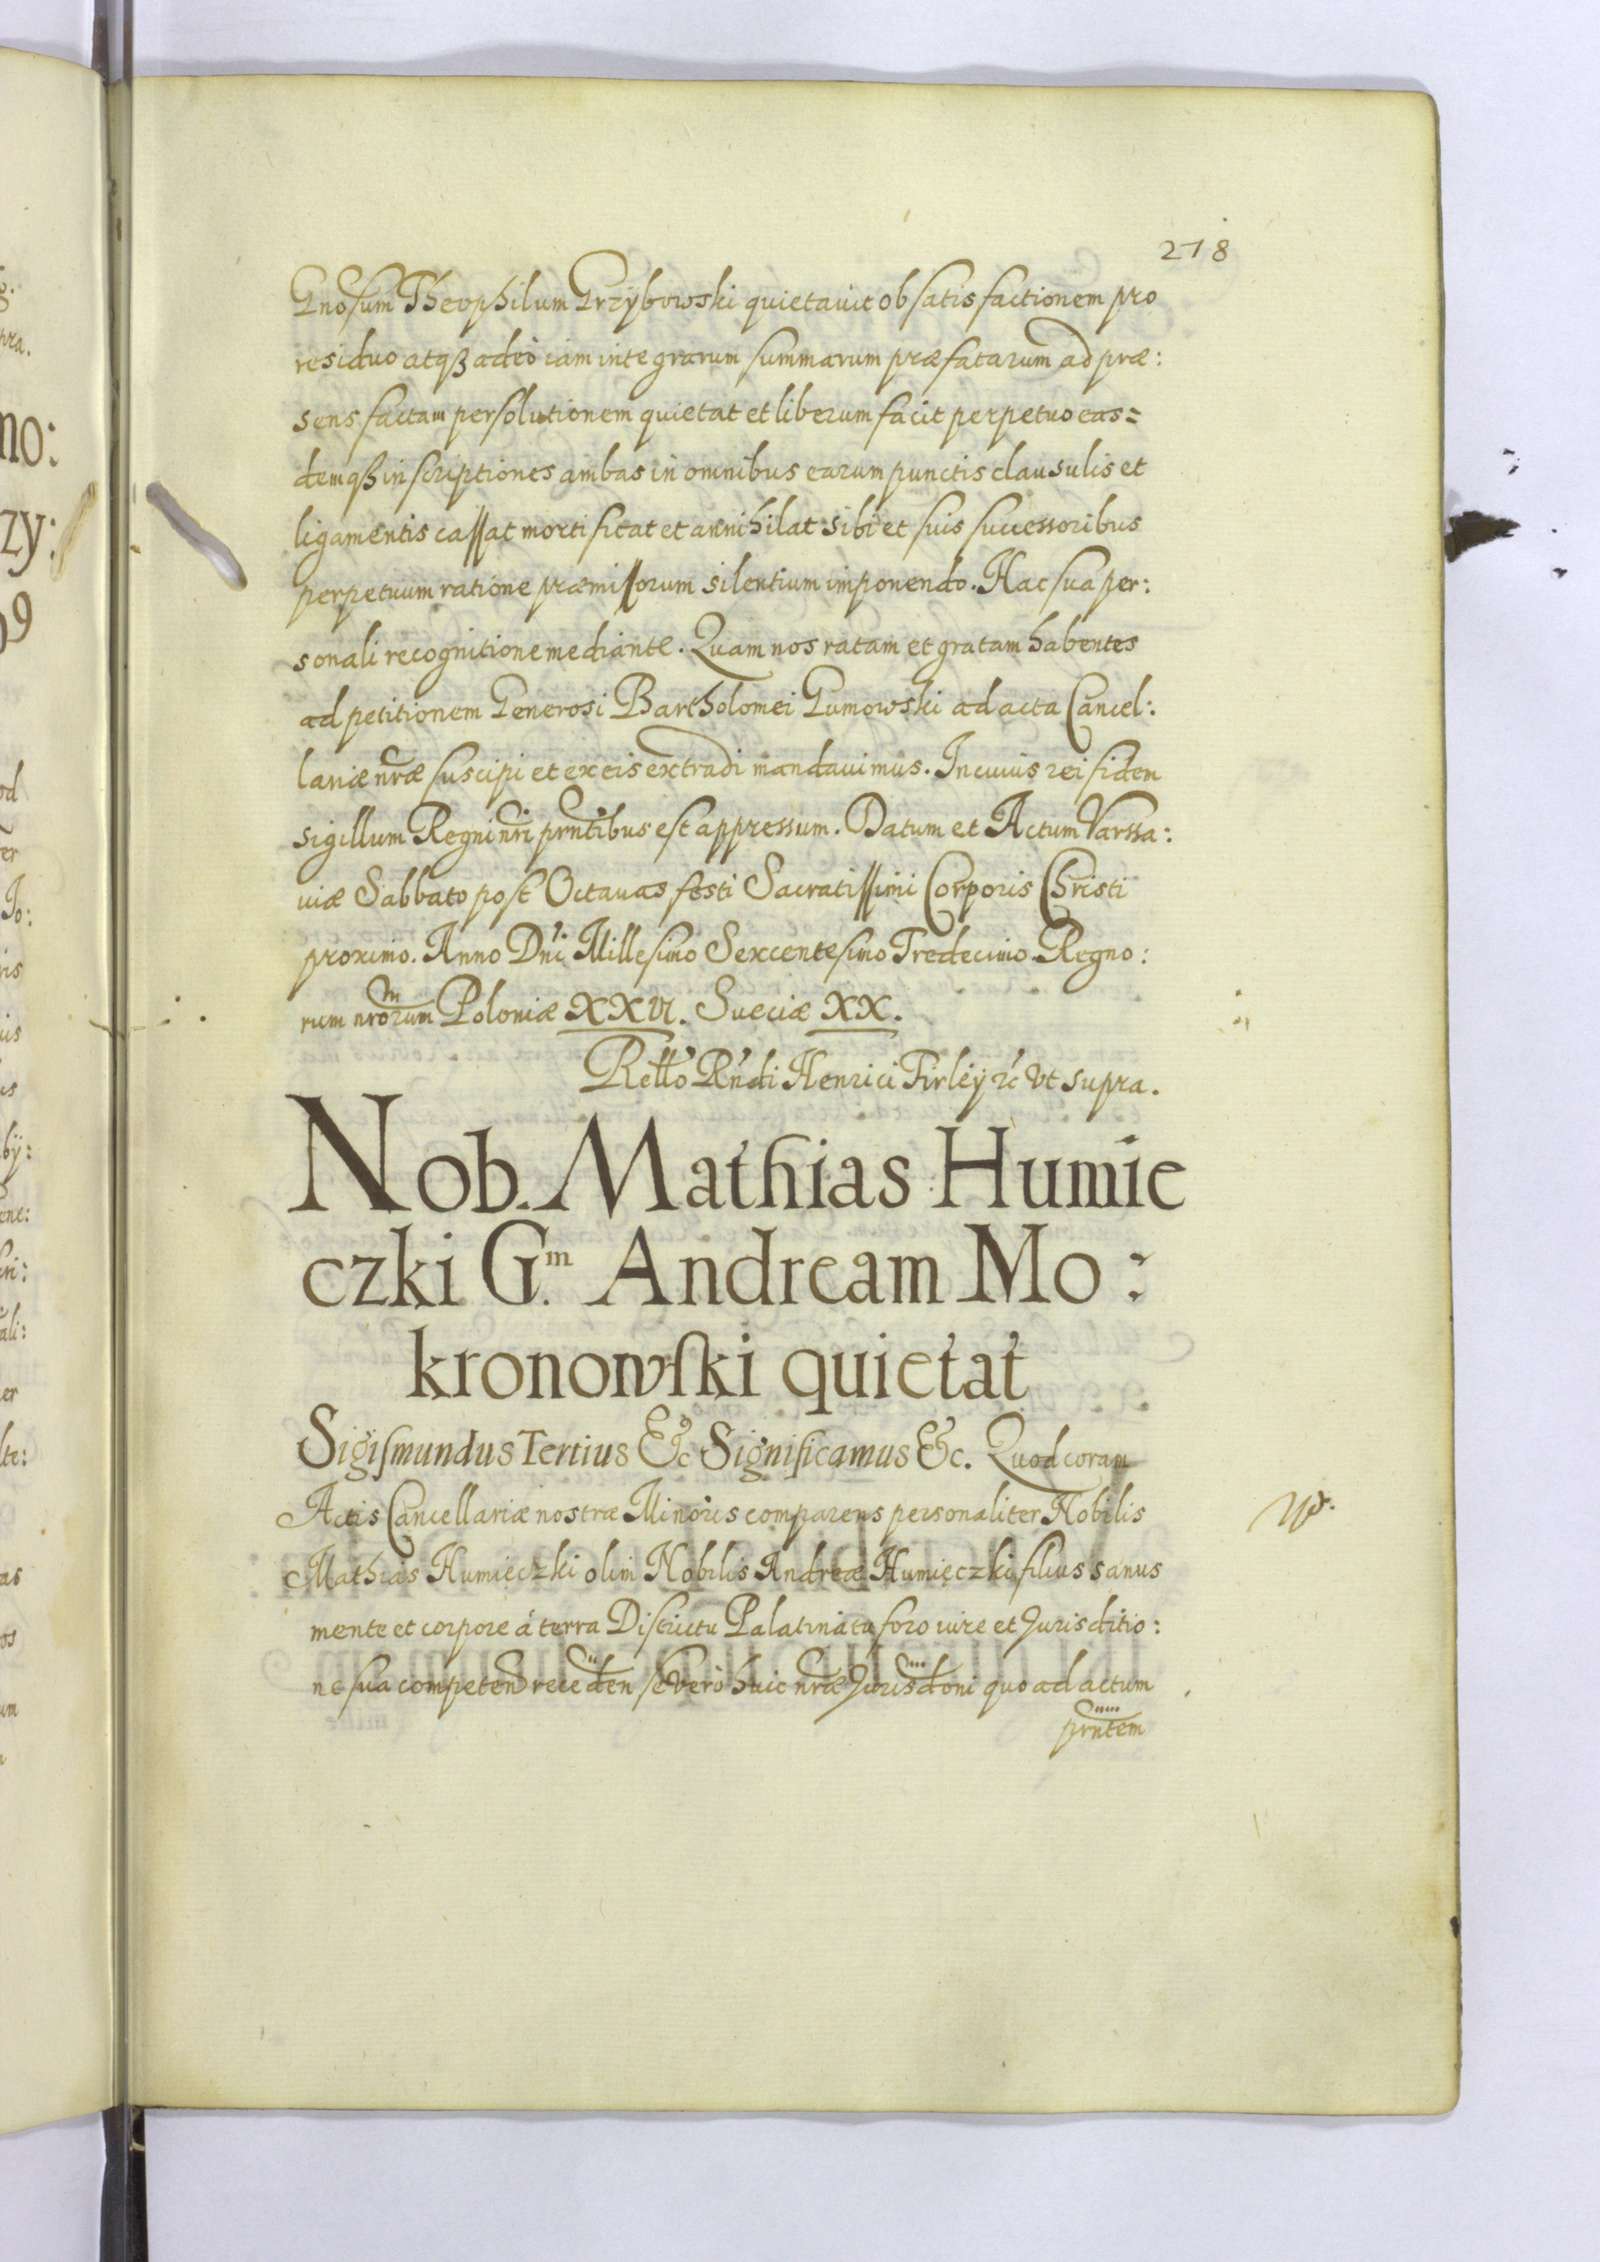 218
Gnosum Theophilum Grzybowski quietavit ob satisfactionem pro
residuo atqꝫ adeò iam integrarum summarum præfatarum ad præ:
sens factam persolutionem quietat et liberum facit perpetuo eas=
demqꝫ inscriptiones ambas in omnibus earum punctis clausulis et
ligamentis cassat mortificat et annihilat sibi et suis successoribus
perpetuum ratione præmissorum silentium imponendo. Hac sua per:
sonali recognitione mediante. Quam nos ratam et gratam habentes
ad petitionem Generosi Bartholomei Gumowski ad acta Cancel:
lariæ nræ suscipi et ex eis extradi mandauimus. In cuius rei fidem
sigillum Regni nri prntibus est appressum. Datum et Actum Varssa:
uiæ Sabbato post Octauas festi Sacratissimi Corporis Christi
proximo. Anno Dni Millesimo Sexcentesimo Tredecimo. Regno:
rum nrorum Poloniæ XXVI. Sueciæ XX.
Rello Rndi Henrici Firley &c Vt supra.
Nob. Mathias Humie
czki G.m Andream Mo:
kronowski quietat
Sigismundus Tertius &c Significamus &c. Quod coram
Actis Cancellariæ nostræ Minoris comparens personaliter Nobilis
Mathias Humięczki olim Nobilis Andreæ Humięczki filius sanus
mente et corpore á terra Districtu Palatinatu foro iure et Jurisditio:
ne sua competen receden se verò huic nræ Jurisdoni quo ad actum
prntem
ꝛis
uis
by:
ali:
er
lte:
as
os
um
pra.
mo:
zy:
09
od
er
Jo: